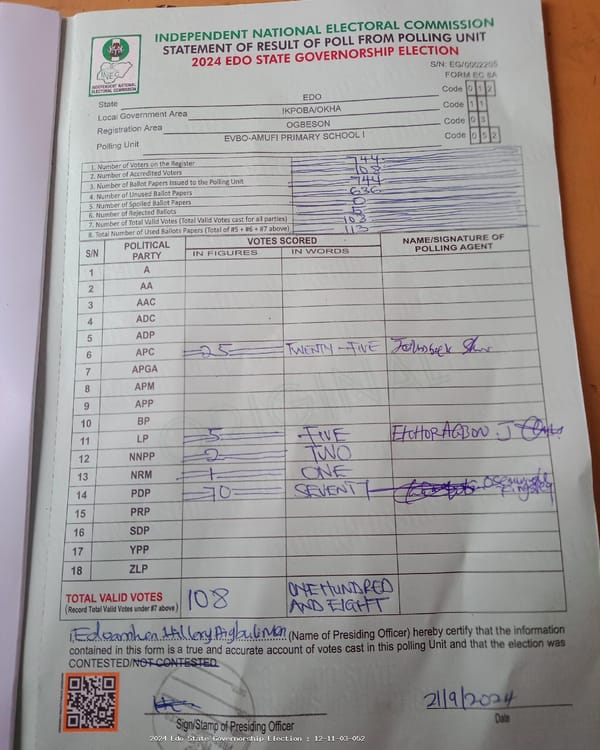 INDEPENDENT NATIONAL ELECTORAL COMMISSION
STATEMENT OF RESULT OF POLL FROM POLLING UNIT
2024 EDO STATE GOVERNORSHIP ELECTION
S/N: EG/0002205
FORM EC 8A
INEC
INDEPENDENT NATIONAL ELECTORAL COMMISSION
State EDO Code 0 1 2
Local Government Area IKPOBA/OKHA Code 1 1
Registration Area OGBESON Code 0 3
Polling Unit EVBO-AMUFI PRIMARY SCHOOL I Code 0 5 2
1. Number of Voters on the Register 744
2. Number of Accredited Voters 108
3. Number of Ballot Papers Issued to the Polling Unit 744
4. Number of Unused Ballot Papers 636
5. Number of Spoiled Ballot Papers 0
6. Number of Rejected Ballots
7. Number of Total Valid Votes (Total Valid Votes cast for all parties) 108
8. Total Number of Used Ballots Papers (Total of #5 + #6 + #7 above) 113
S/N POLITICAL PARTY VOTES SCORED NAME/SIGNATURE OF POLLING AGENT
IN FIGURES IN WORDS
1 A
2 AA
3 AAC
4 ADC
5 ADP
6 APC 25 TWENTY-FIVE
7 APGA
8 APM
9 APP
10 BP
11 LP 5 FIVE EHHORAGBON J
12 NNPP 2 TWO
13 NRM 1 ONE
14 PDP 70 SEVENTY
15 PRP
16 SDP
17 YPP
18 ZLP
TOTAL VALID VOTES 108 ONE HUNDRED
(Record Total Valid Votes under #7 above) AND EIGHT
I, Hillary (Name of Presiding Officer) hereby certify that the information
contained in this form is a true and accurate account of votes cast in this polling Unit and that the election was
CONTESTED/NOT CONTESTED
21/9/2024
Sign/Stamp of Presiding Officer Date
2024 Edo State Governorship Election : 12-11-03-052